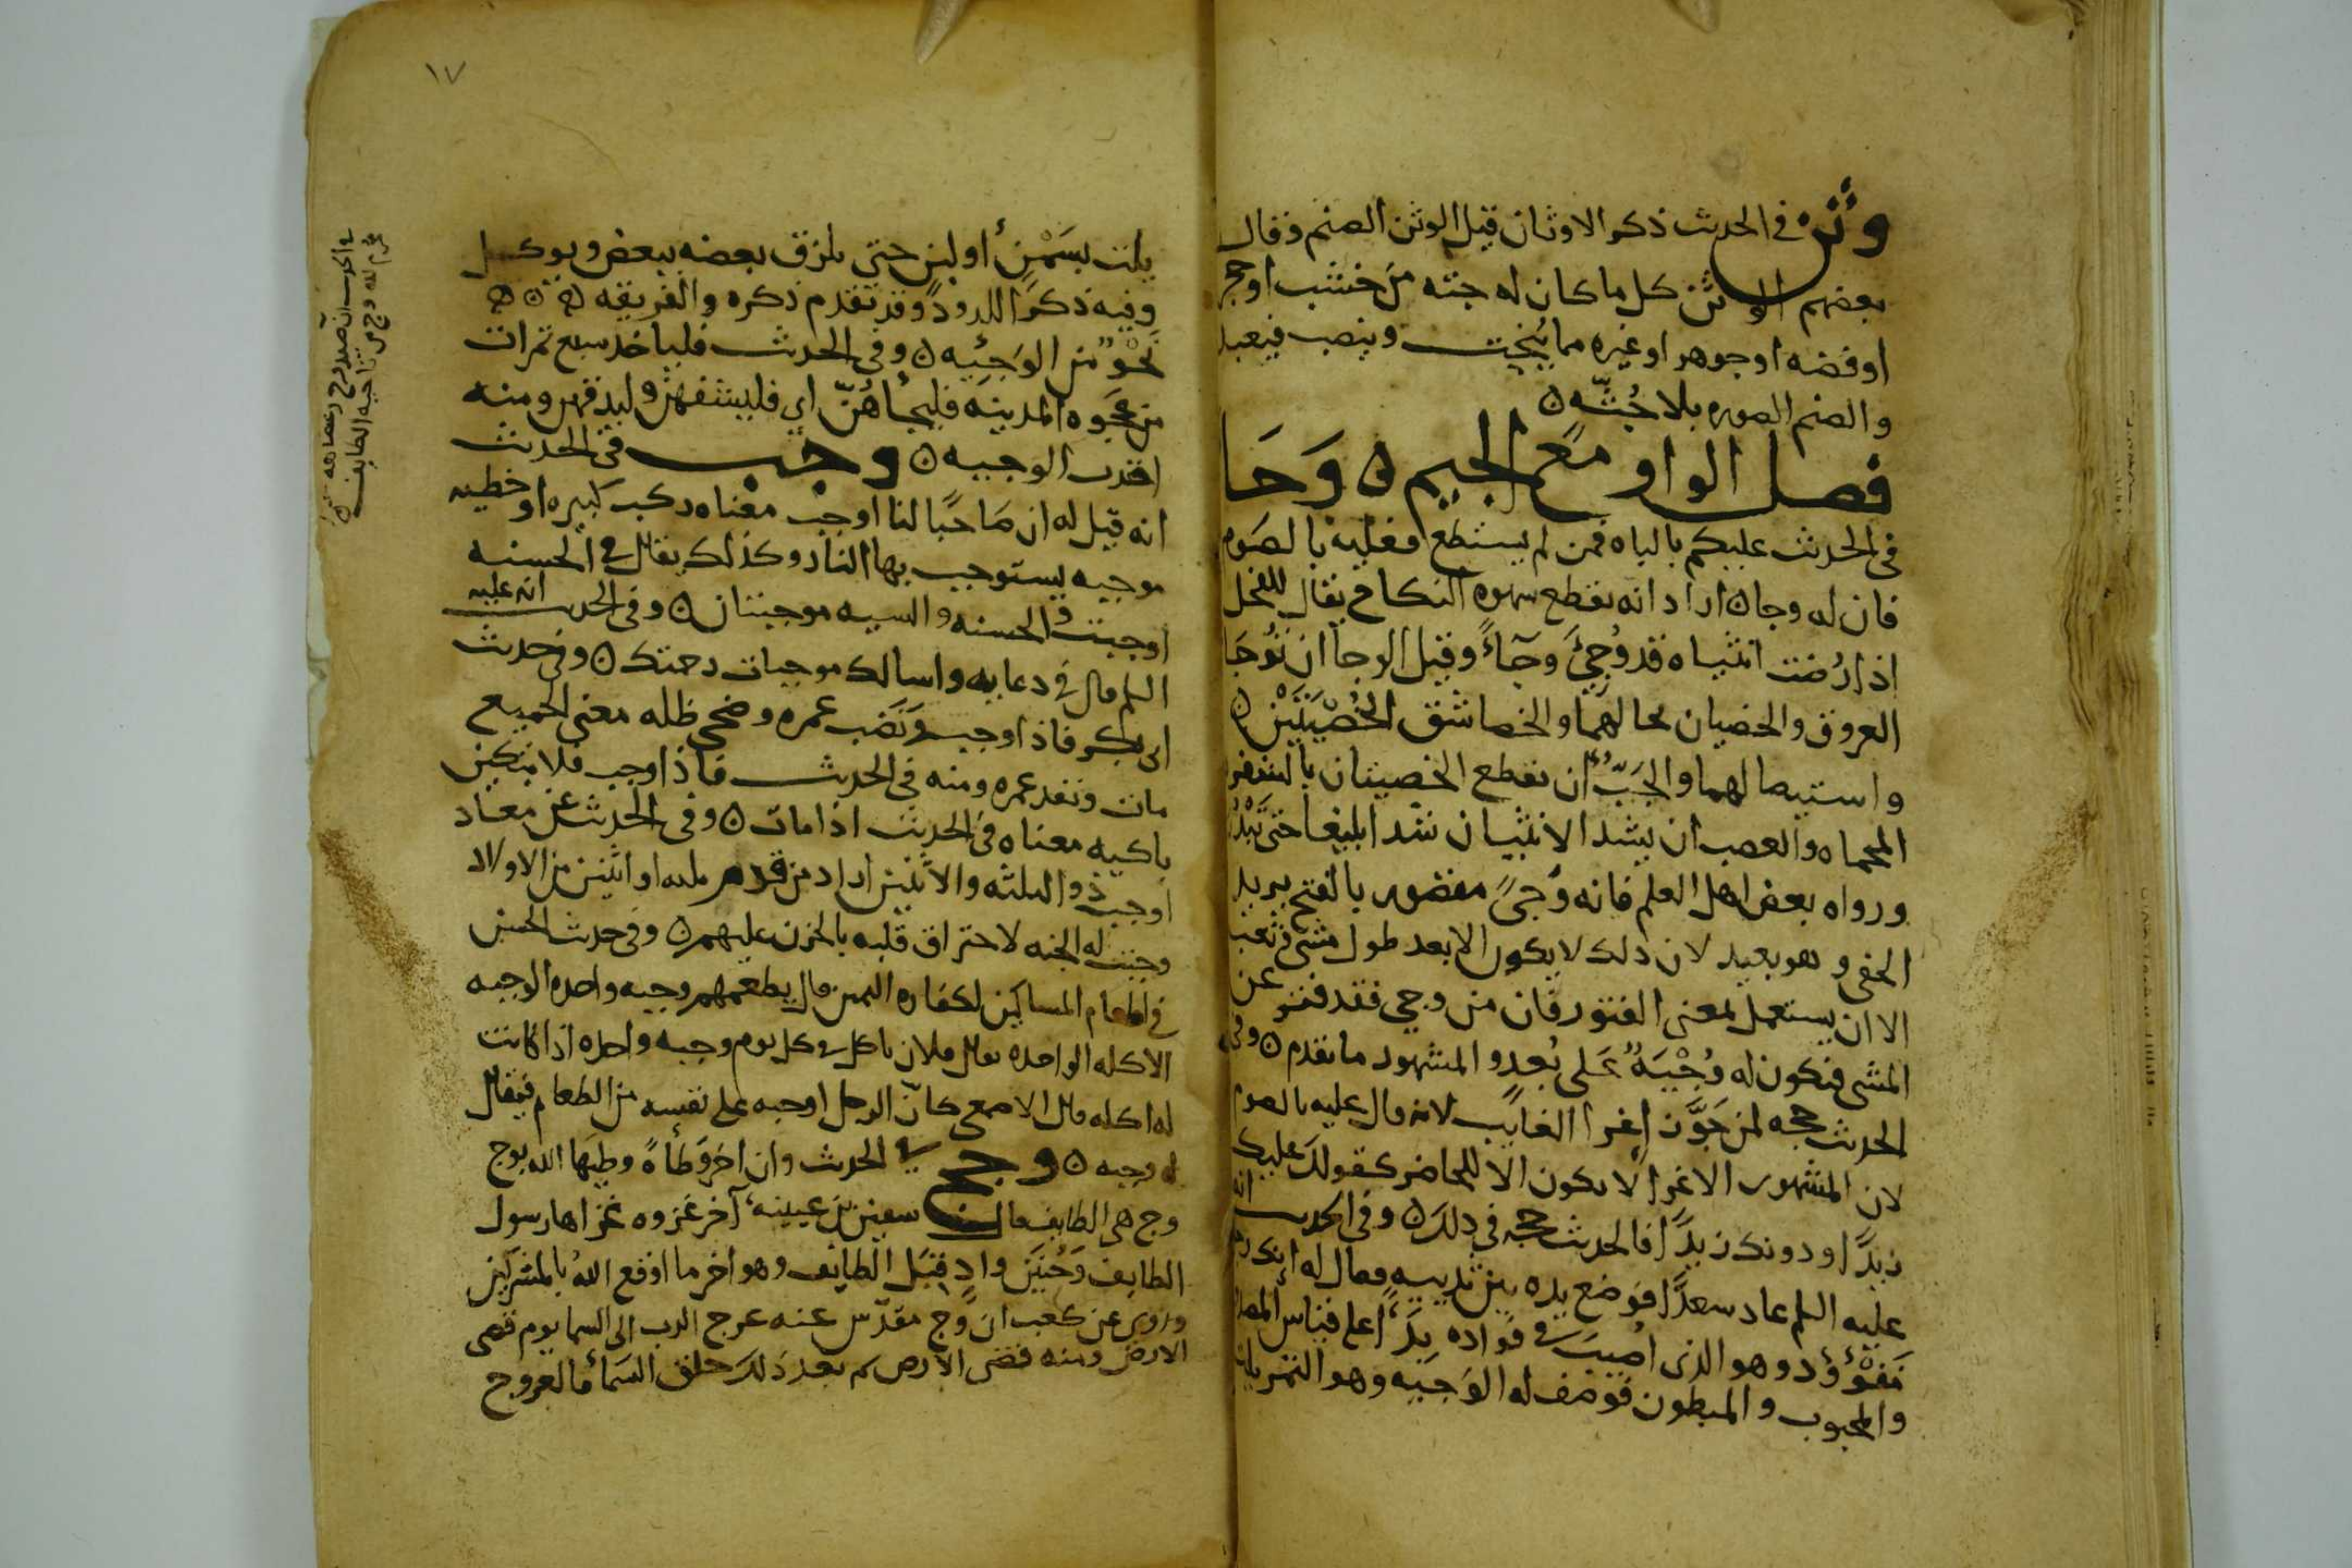 وثن في الحديث ذكر الاوثان قيل الوثن الصنم وقال
بعضهم الوثن كل ما كان له جثه من خشب او حجر
او فضه او جوهر او غيره مما ينحت وينصب فيعبد
والصنم الصوره بلا جُثّه ٥
فصل الواو مع الجيم ٥ وَجَا
في الحديث عليكم بالباه فمن لم يستطع فعليه بالصَوم
فان له وجا٥ اراد انه يقطع شهوه النكاح يقال للفحل
اذا رُضت انثياه قد وُجِئَ وِجَآءً وقيل الوجا ان تُوجَا
العروق والخصيان بحالهمَا والخصا شق الخُصْيَتَيْن ٥
واستيصالهما والجَبّ ان تقطع الخصيتان بالشفره
المحماه والعصب ان يشد الانثيان شدا بليغا حتى تَنْدُر
ورواه بعض اهل العلم فانه وَجًى مقصور بالفتح يريد
الحفى وهو بعيد لان ذلك لا يكون الا بعد طول مشى وتعب
الا ان يستعمل بمعنى الفتور فان من وجى فقد فتر عن
المشى فتكون له وُجْيَهٌ عَلى بُعدٍ والمشهور ما تقدم ٥ وفي
الحديث حجه لمن جَوَّز اغرا الغايب لانه قال عليه بالصوم
لان المشهور الاغرا لا يكون الا للحاضر كقولك عليك
زيدًا او دونك زيدًا فالحديث حجه في ذلك ٥ وفي الحديث انه
عليه السلم عاد سعدًا فوضع يده بين ثدييه وقال له انك رجل
مَفْؤُود وهو الذي اصيب في فواده بِدَآءٍ على قياس المصدور
والمجبوب والمبطون فوصف له الوَجيه وهو التمر يبل
يلت بسَمْنٍ أو لبن حتى يلزق بعضه ببعض ويوكل
وفيه ذكر اللدود وقد تقدم ذكره والفريقه ٥ ٥ ٥
نَحْوٌ من الوَجِيْه ٥ وفي الحديث فلياخد سبع تمرات
من عجوه المدينه فليجأهُنّ اي فليسفهن وليدقهن ومنه
اخذت الوجيه ٥ وجب في الحديث
انه قيل له ان صَاحبًا لنا اوجب معناه ركب كبيره او خطيه
موجبه يستوجب بها النار وكذلك يقال في الحسنه
اوجبت والحسنه والسيه موجبتان ٥ وفي الحديث انه عليه
السلم قال في دعايه واسالك موجبات رحمتك ٥ وفي حديث
ابى بكر فاذا اوجب ونَضَب عمره وضحى ظله معنى الجميع
مات ونفد عمره ومنه في الحديث فاذا اوجب فلا تبكين
باكيه معناه في الحديث اذا مات ٥ وفي الحديث عن معاد
اوجب ذو الثلثه والاثنين اراد من قدم ثلثه او اثنين من الاولاد
وجبت له الجنه لاحتراق قلبه بالحزن عليهم ٥ وفي حديث الحسن
في اطعام المساكين لكفاره اليمين قال يطعمهم وجبه واحده الوجبه
الاكله الواحده يقال فلان ياكل في كل يوم وجبه واحده اذا كانت
له اكله قال الاصمعى كانّ الرجل اوجبه على نفسه من الطعام فيقال
له وجبه ٥ وجج في الحديث وان اخر وَطأهً وطِيَها الله بوج
وج هى الطايف قال سفين بن عيينه آخر غزوه غزاها رسول
الطايف وحُنَين وادٍ قِبَل الطايف وهو اخر ما اوقع اللهُ بالمشركين
وروى عن كعب ان وَج مقدّس عنه عرج الرب الى السما يوم قضى
الارض ومنه قضى الارض ثم بعد ذلك خلق السَمآ فالعروج
في الحديث ان صيد وج وعضاهه
محرم لله وج من ناحيه الطايف ٥
١٧